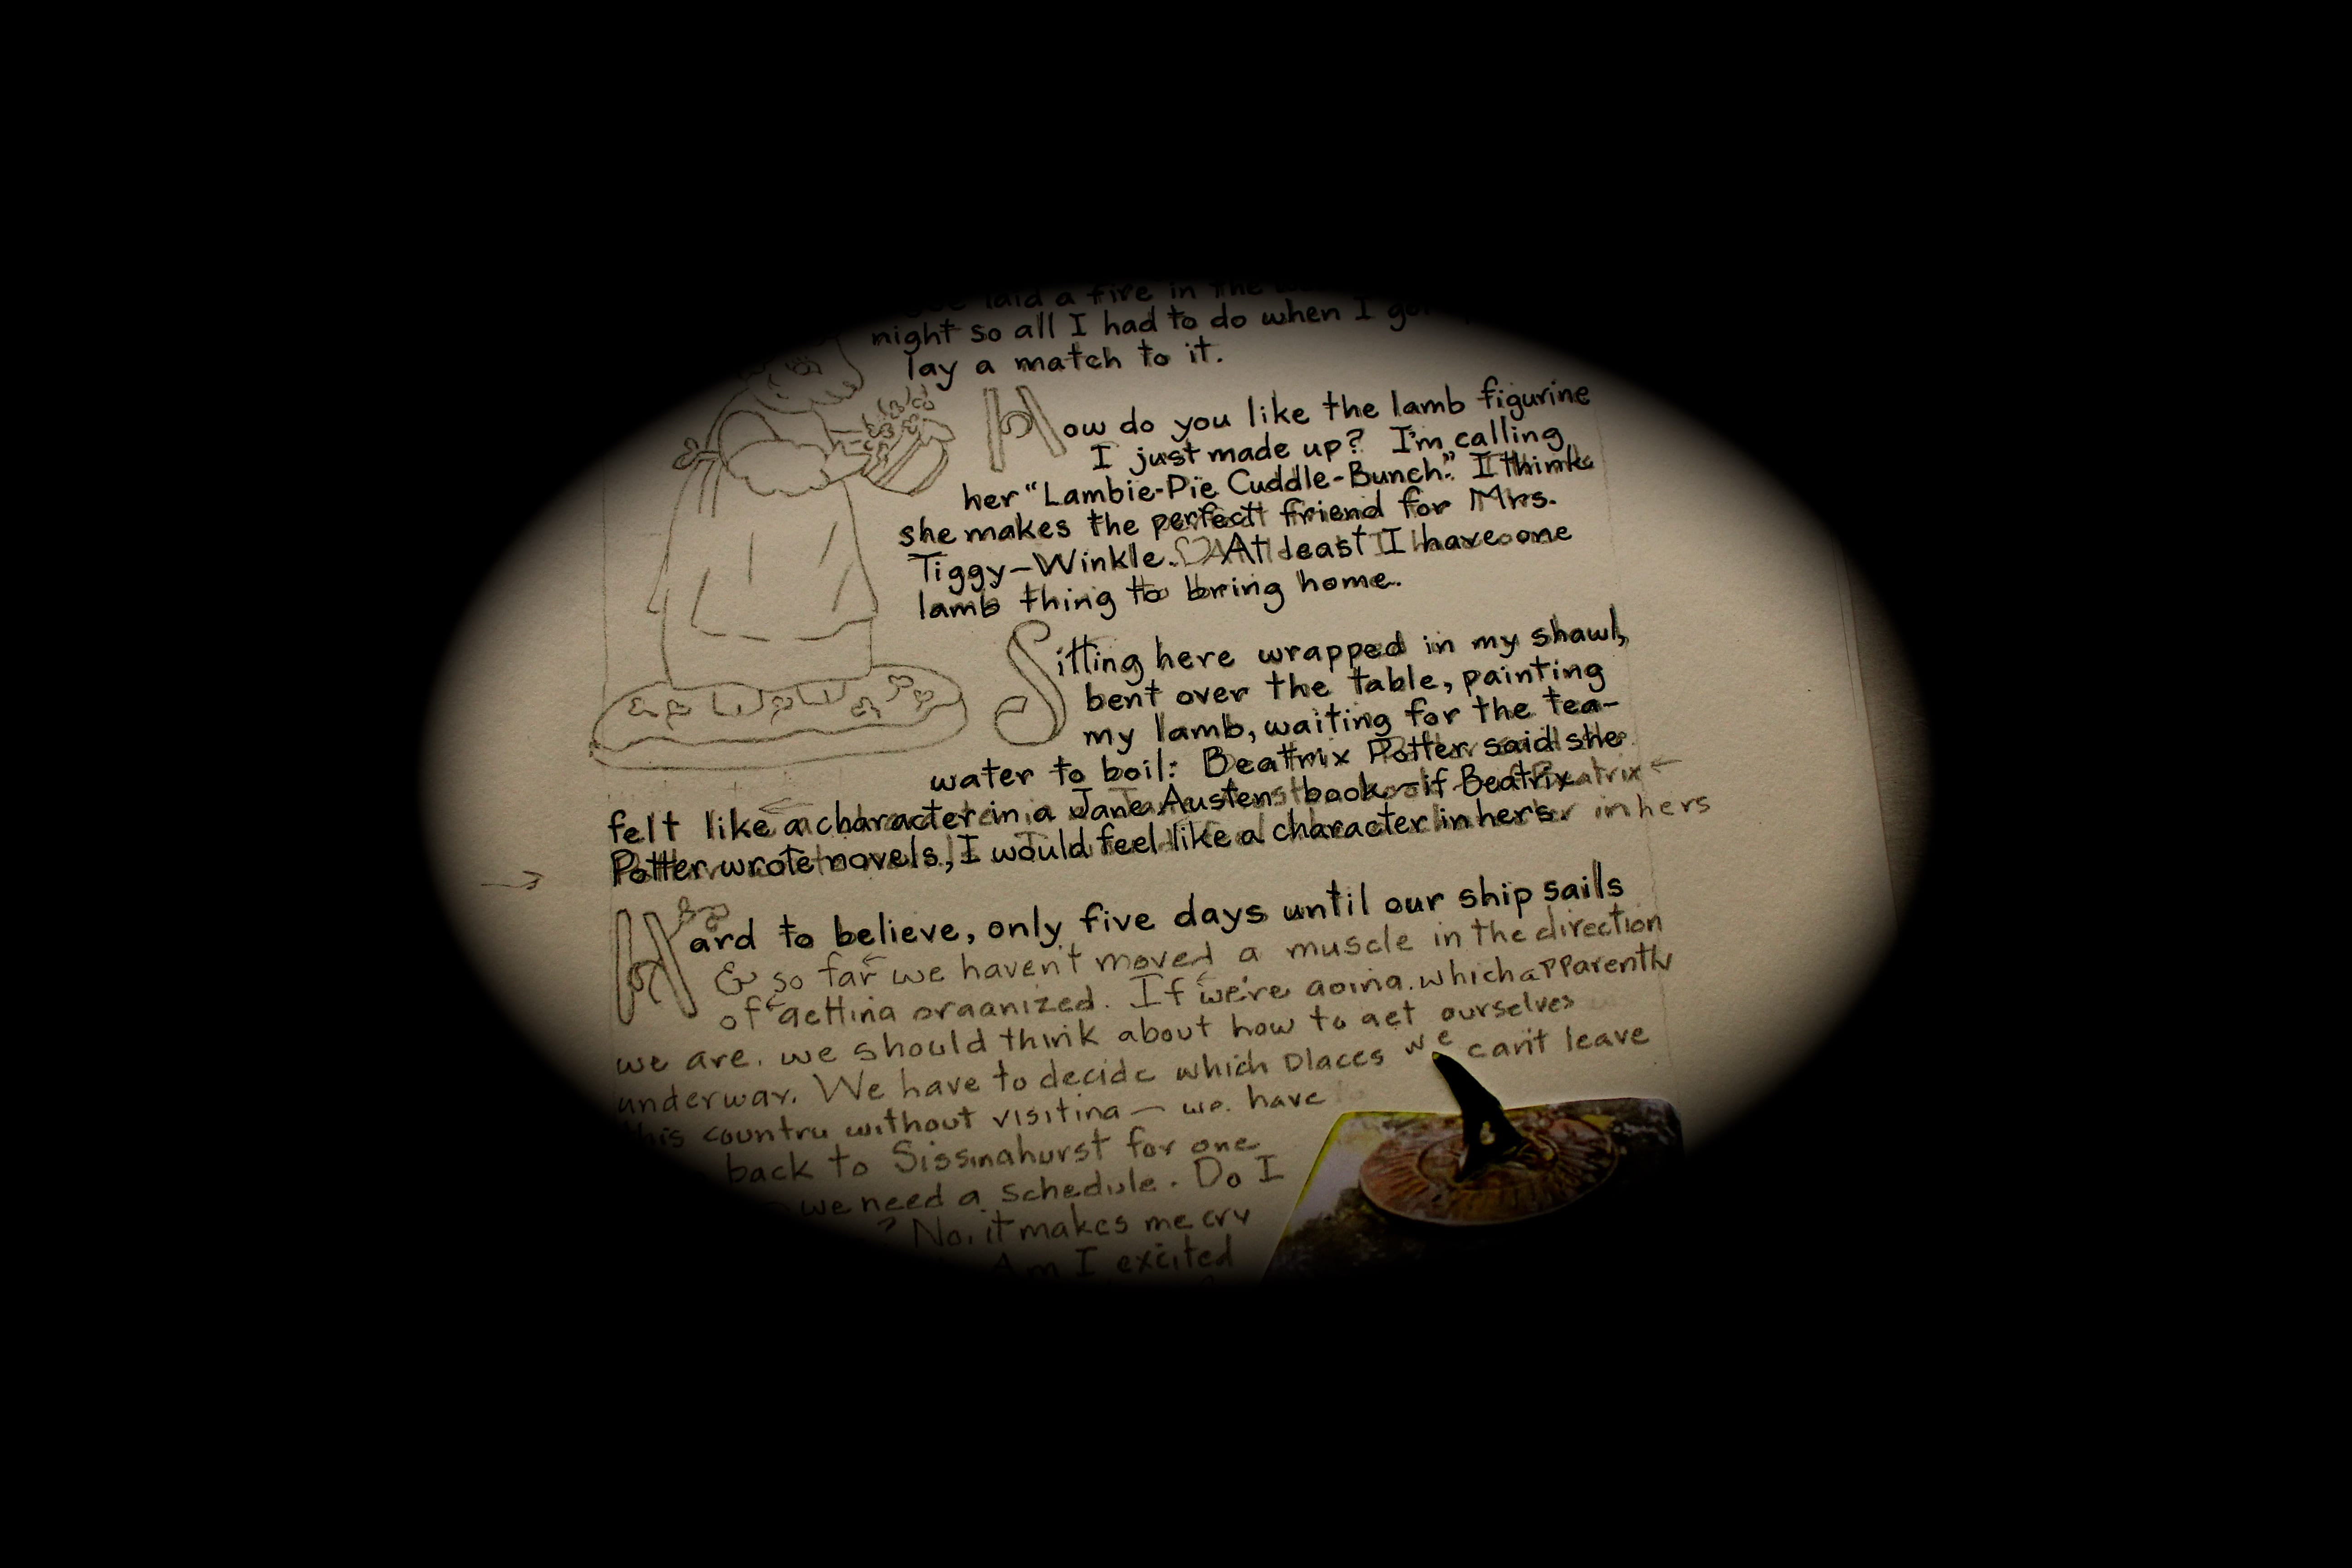 laid a fire in the
night so all I had to do when I
lay a match to it.
How do you like the lamb figurine
I just made up? I'm calling
her "Lambie-Pie Cuddle-Bunch." I think
she makes the perfect friend for Mrs.
Tiggy-Winkle. ♡ At least I have one
lamb thing to bring home.
Sitting here wrapped in my shawl,
bent over the table, painting
my lamb, waiting for the tea-
water to boil: Beatrix Potter said she
felt like a character in a Jane Austen book—if Beatrix
Potter wrote novels, I would feel like a character in hers.
Hard to believe, only five days until our ship sails
& so far we haven't moved a muscle in the direction
of getting organized. If we're going, which apparently
we are, we should think about how to get ourselves
underway. We have to decide which places we can't leave
this country without visiting — we have
back to Sissinghurst for one
we need a schedule. Do I
? No, it makes me cry
Am I excited